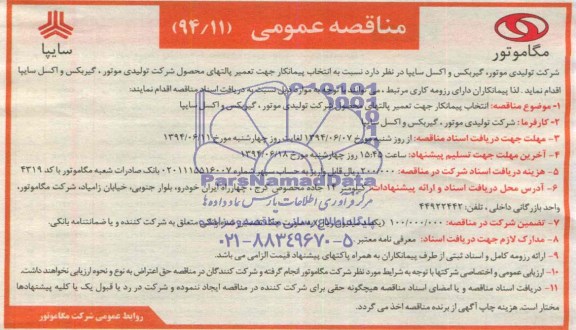 مناقصه عمومی (۹۴/۱۱)
مگاموتور
سایپا
شرکت تولیدی موتور، گیربکس و اکسل سایپا در نظر دارد نسبت به انتخاب پیمانکار جهت تعمیر پالتهای محصول شرکت تولیدی موتور ، گیربکس و اکسل سایپا
اقدام نماید. لذا پیمانکاران دارای رزومه کاری مرتبط ، می توانند با توجه به موارد ذیل نسبت به دریافت اسناد مناقصه اقدام نمایند:
۱- موضوع مناقصه: انتخاب پیمانکار جهت تعمیر پالتهای محصول شرکت تولیدی موتور ، گیربکس و اکسل سایپا
۲- کارفرما: شرکت تولیدی موتور ، گیربکس و اکسل سایپا
۳- مهلت جهت دریافت اسناد مناقصه: از روز شنبه مورخ ۱۳۹۴/۰۶/۰۷ لغایت روز چهارشنبه مورخ ۱۳۹۴/۰۶/۱۱
۴- آخرین مهلت جهت تسلیم پیشنهاد: ساعت ۱۵:۴۵ روز چهارشنبه مورخ ۱۳۹۴/۰۶/۱۸
۵- هزینه دریافت اسناد شرکت در مناقصه: ۲۰۰/۰۰۰ ریال قابل واریز به حساب سپهر شماره ۰۲۰۱۱۱۵۵۱۶۰۰۷ بانک صادرات شعبه مگاموتور با کد ۴۳۱۹
۶- آدرس محل دریافت اسناد و ارائه پیشنهادات: کیلومتر ۱۲ جاده مخصوص کرج ، چهارراه ایران خودرو، بلوار جنوبی، خیابان زامیاد، شرکت مگاموتور،
واحد بازرگانی داخلی ، تلفن: ۴۴۹۲۲۴۴۲
۷- تضمین شرکت در مناقصه: ۱۰۰/۰۰۰/۰۰۰ متعلق به شرکت کننده و یا ضمانتنامه بانکی.
۸- مدارک لازم جهت دریافت اسناد: معرفی نامه معتبر
۹- ارائه رزومه کامل و اسناد ثبتی از طرف پیمانکاران به همراه پاکتهای پیشنهاد قیمت الزامی می باشد.
۱۰- ارزیابی عمومی و اختصاصی شرکتها با توجه به شرایط مورد نظر شرکت مگاموتور انجام گرفته و شرکت کنندگان در مناقصه حق اعتراض به نوع و نحوه ارزیابی نخواهند داشت.
۱۱- دریافت اسناد مناقصه و یا امضای اسناد مناقصه هیچگونه حقی برای شرکت کننده در مناقصه ایجاد ننموده و شرکت در رد یا قبول یک یا کلیه پیشنهادها
مختار است. هزینه چاپ آگهی از برنده مناقصه اخذ می گردد.
روابط عمومی شرکت مگاموتور
ParsNamadData
مرکز فرآوری اطلاعات پارس نماد داده ها
پایگاه اطلاع رسانی مناقصه و مزایده
۰۲۱-۸۸۳۴۹۶۷۰-۵